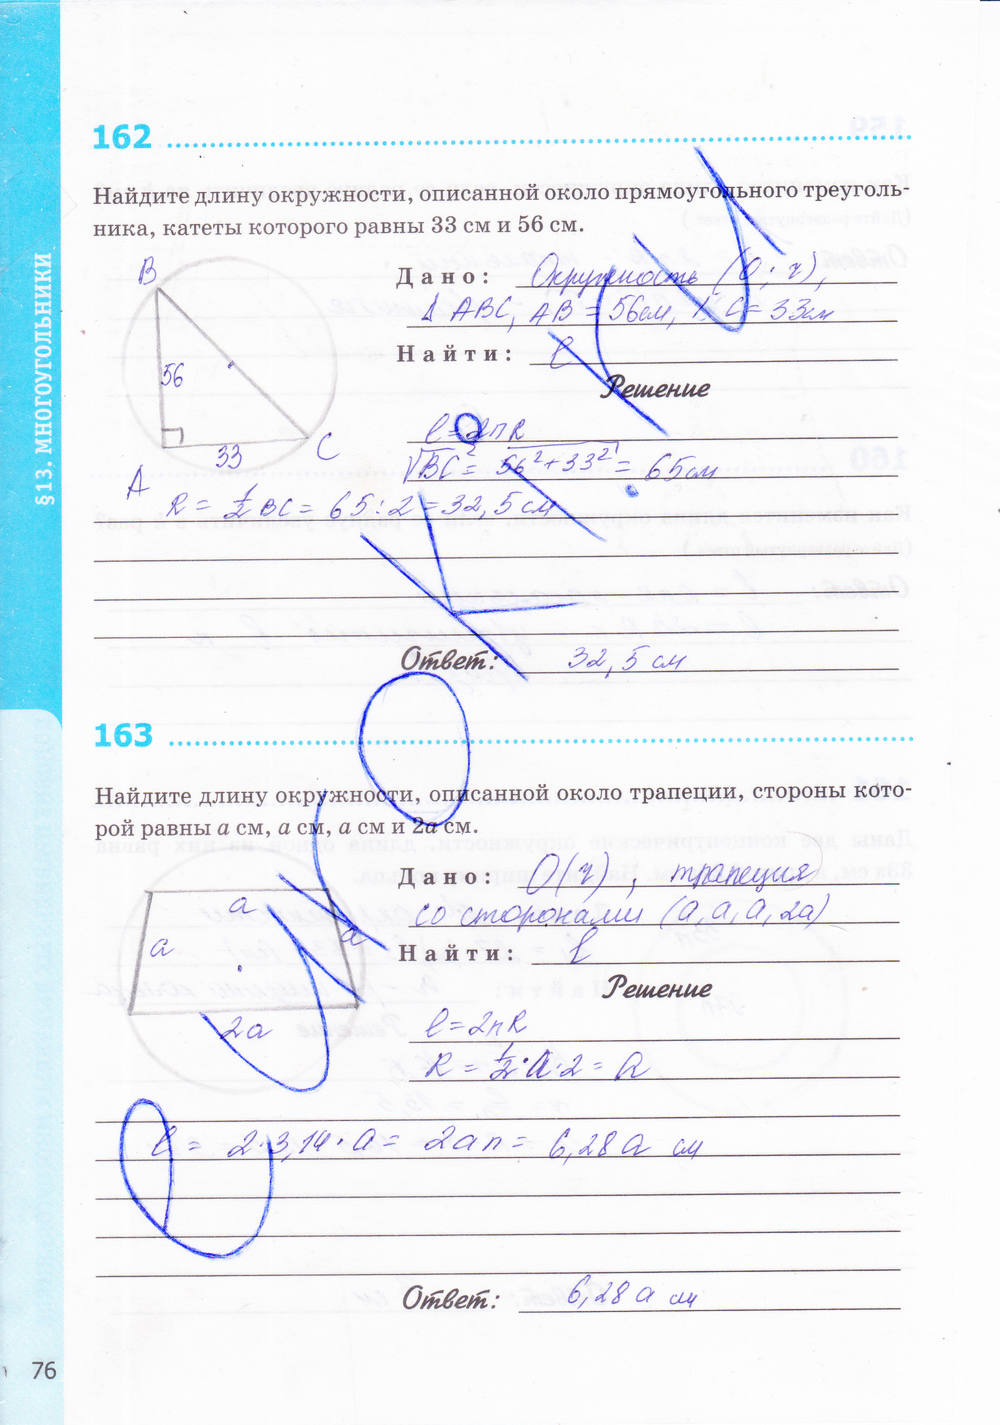 162
Найдите длину окружности, описанной около прямоугольного треуголь-
ника, катеты которого равны 33 см и 56 см.
B
56
33
A
C
Дано: Окружность (O; r),
Δ ABC, AB = 56см, AC = 33см
Найти: l
Решение
l = 2πR
√BC² = √56² + 33² = 65см
R = 1/2 BC = 65 : 2 = 32,5 см
Ответ: 32,5 см
163
Найдите длину окружности, описанной около трапеции, стороны кото-
рой равны a см, a см, a см и 2a см.
a
a
a
2a
Дано: O(r), трапеция
со сторонами (a, a, a, 2a)
Найти: l
Решение
l = 2πR
R = 1/2 · a · 2 = a
l = 2 · 3,14 · a = 2aπ = 6,28 a см
Ответ: 6,28 a см
§13. МНОГОУГОЛЬНИКИ
76